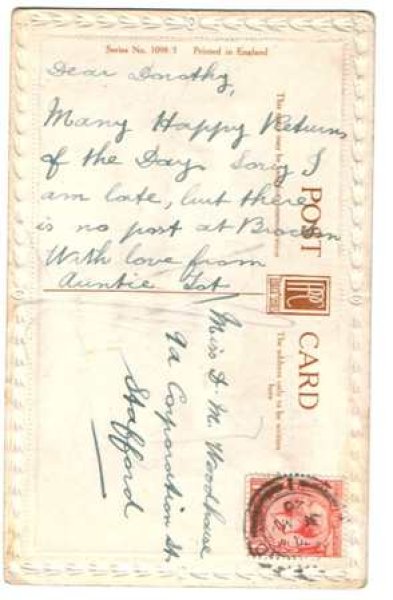 Series No. 1098/1 Printed in England
Dear Dorothy,
Many Happy Returns
of the Day. Sorry I
am late, but there
is no post at Brocton
With love from
Auntie Tot
POST CARD
The address only to be written
here
Miss D. M. Woodhouse
9a Corporation St.
Stafford